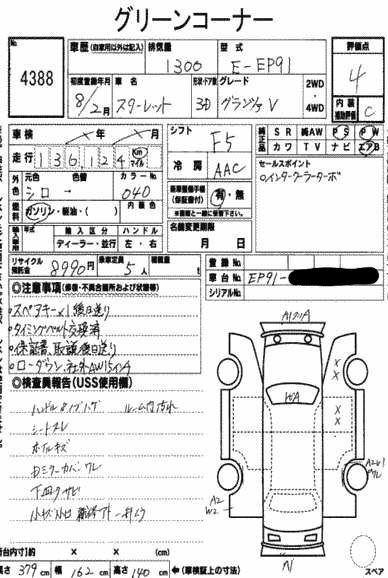 グリーンコーナー
No 4388
車歴 (自家用以外は記入) 排気量 1300 型式 E-EP91 評価点 4
初度登録年月 8/2月 車名 スターレット 形状・ドア数 3D グレード グランツァV 2WD・4WD 内装補助評価 C
車検 ×年 ×月 シフト F5 純正品 SR 純AW PS PW
カワ TV ナビ エアB
走行 136,124 Km マイル
冷房 AAC
セールスポイント
○インタークーラーターボ
外色 元色 シロ → 色替 カラーNo. 040
新車整備手帳(保証書付) 有・無
※書類と一緒に保管下さい。
燃料 ガソリン・軽油・( ) 内装色
名義変更期限 月 日
輸入車用 年式 輸入区分 ディーラー・並行 ハンドル 左・右
リサイクル預託金 8990円 乗車定員 5人 積載量 t
登録No.
車台No. EP91-
シリアルNo.
◎注意事項(修復・不具合箇所および状態等)
○スペアキー×1 後日送り
○タイミングベルト交換済
○保証書、取説 後日送り
○ローダウン、社外AW15インチ
◎検査員報告(USS使用欄)
ハンドル&ノブハゲ ルーム内汚れ
シートスレ
ホイルキズ
下回りサビ
A1
A2
W2
スペア
台内寸 約 × × (cm)
長さ 379 cm 幅 162 cm 高さ 140 cm ←(車検証上の寸法)